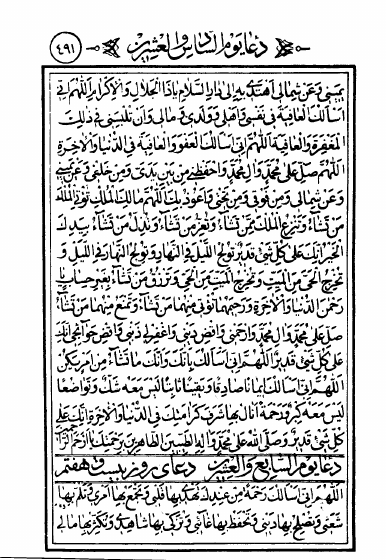 ۴۹۱ دعا يوم السادس والعشرين
يميني وعن شمالي اهتدي به الى دار السلام ياذا الجلال والاكرام اللهم اني
اسألك العافية في نفسي واهلي وولدي ومالي وان تلبسني في ذلك
المغفرة والعافية اللهم اني اسألك العفو والعافية في الدنيا والاخرة
اللهم صل على محمد وال محمد واحفظني من بين يدي ومن خلفي وعن يميني
وعن شمالي ومن فوقي ومن تحتي واعوذ بك اللهم مالك الملك تؤتي الملك
من تشاء وتنزع الملك ممن تشاء وتعز من تشاء وتذل من تشاء بيدك
الخير انك على كل شئ قدير تولج الليل في النهار وتولج النهار في الليل و
تخرج الحي من الميت وتخرج الميت من الحي وترزق من تشاء بغير حساب يا
رحمن الدنيا والاخرة ورحيمهما تؤتي منهما من تشاء وتمنع منهما من تشاء
صل على محمد وال محمد وارحمني واقض ديني واغفر لي ذنبي واقض حوائجي انك
على كل شئ قدير اللهم اني اسألك بانك وانك ما تشاء من امر يكن
اللهم اني اسألك ايمانا صادقا ويقينا ثابتا ليس معه شك وتواضعا
ليس معه كبر ورحمة انال بها شرف كرامتك في الدنيا والاخرة انك على
كل شئ قدير وصلى الله على محمد واله الطيبين الطاهرين برحمتك يا ارحم الراحمين
دعا يوم السابع والعشرين دعاى روز بيست وهفتم
اللهم اني اسألك رحمة من عندك تهدي بها قلبي وتجمع بها امري وتلم بها
شعثي وتصلح بها ديني وتحفظ بها غائبي وتزكي بها شاهدي وتكثر بها مالي